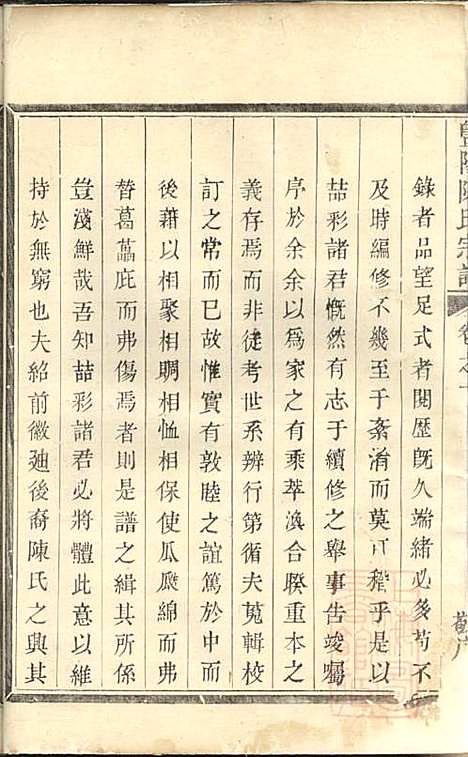 暨陽陳氏宗譜 卷之一
錄者品望足式者閱歷旣久端緒必多苟不
及時編修不幾至于紊淆而莫可稽乎是以
喆彩諸君慨然有志于續修之舉事告竣囑
序於余余以爲家之有乘萃渙合睽重本之
義存焉而非徒考世系辨行第循夫蒐輯校
訂之常而已故惟實有敦睦之誼篤於中而
後藉以相聚相賙相恤相保使瓜瓞綿而弗
替葛藟庇而弗傷焉者則是譜之緝其所係
豈淺鮮哉吾知喆彩諸君必將體此意以維
持於無窮也夫紹前徽廸後裔陳氏之與其